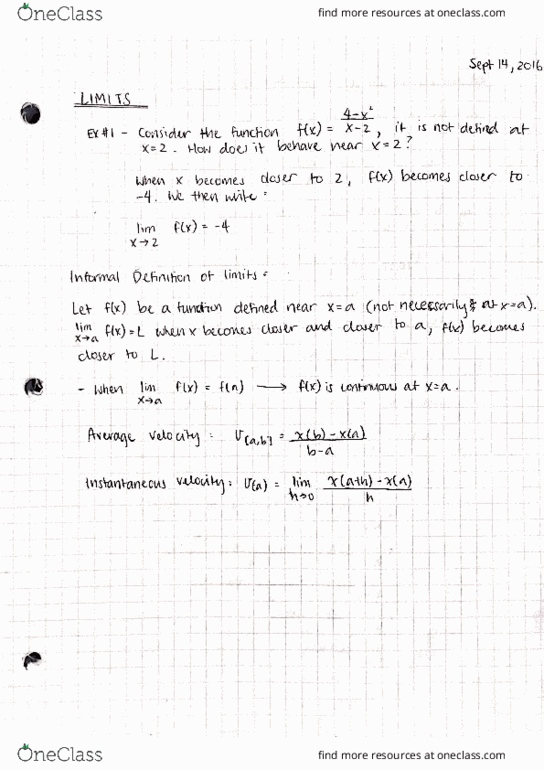 OneClass find more resources at oneclass.com
Sept 14, 2016
LIMITS
Ex #1 - Consider the function f(x) = (4-x²)/(x-2), it is not defined at
x=2. How does it behave near x=2?
When x becomes closer to 2, f(x) becomes closer to
-4. We then write:
lim x→2 f(x) = -4
Informal Definition of limits:
Let f(x) be a function defined near x=a (not necessarily at x=a).
lim x→a f(x)=L when x becomes closer and closer to a, f(x) becomes
closer to L.
- When lim x→a f(x) = f(a) → f(x) is continuous at x=a.
Average velocity: V[a,b] = (x(b)-x(a))/(b-a)
Instantaneous velocity: V(a) = lim h→0 (x(a+h)-x(a))/h
OneClass find more resources at oneclass.com